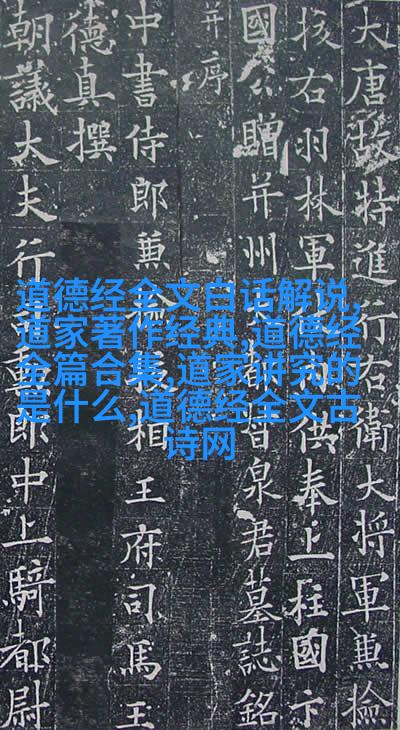 大唐故特進行右衛大將軍兼撿
挍右羽林軍供奉上柱國卞
國公贈并州都督泉君墓誌銘
并序
中書侍郎兼檢相王府司馬王
德真撰
朝議大夫行勳郎中上騎都尉
道德经全文白话解说,
道家著作经典,道德经
全篇合集,道家讲究的
是什么,道德经全文古
诗网